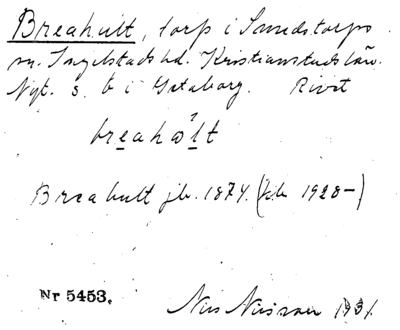 Breahult, torp i Smedstorps
sn. Ingelstads hd. Kristianstads län.
Nyt. s. b i Gataborg. Rivet
breahult
Breahult jb. 1874. (jb 1928-)
Nr 5453.
Nils Nilsson 1931.